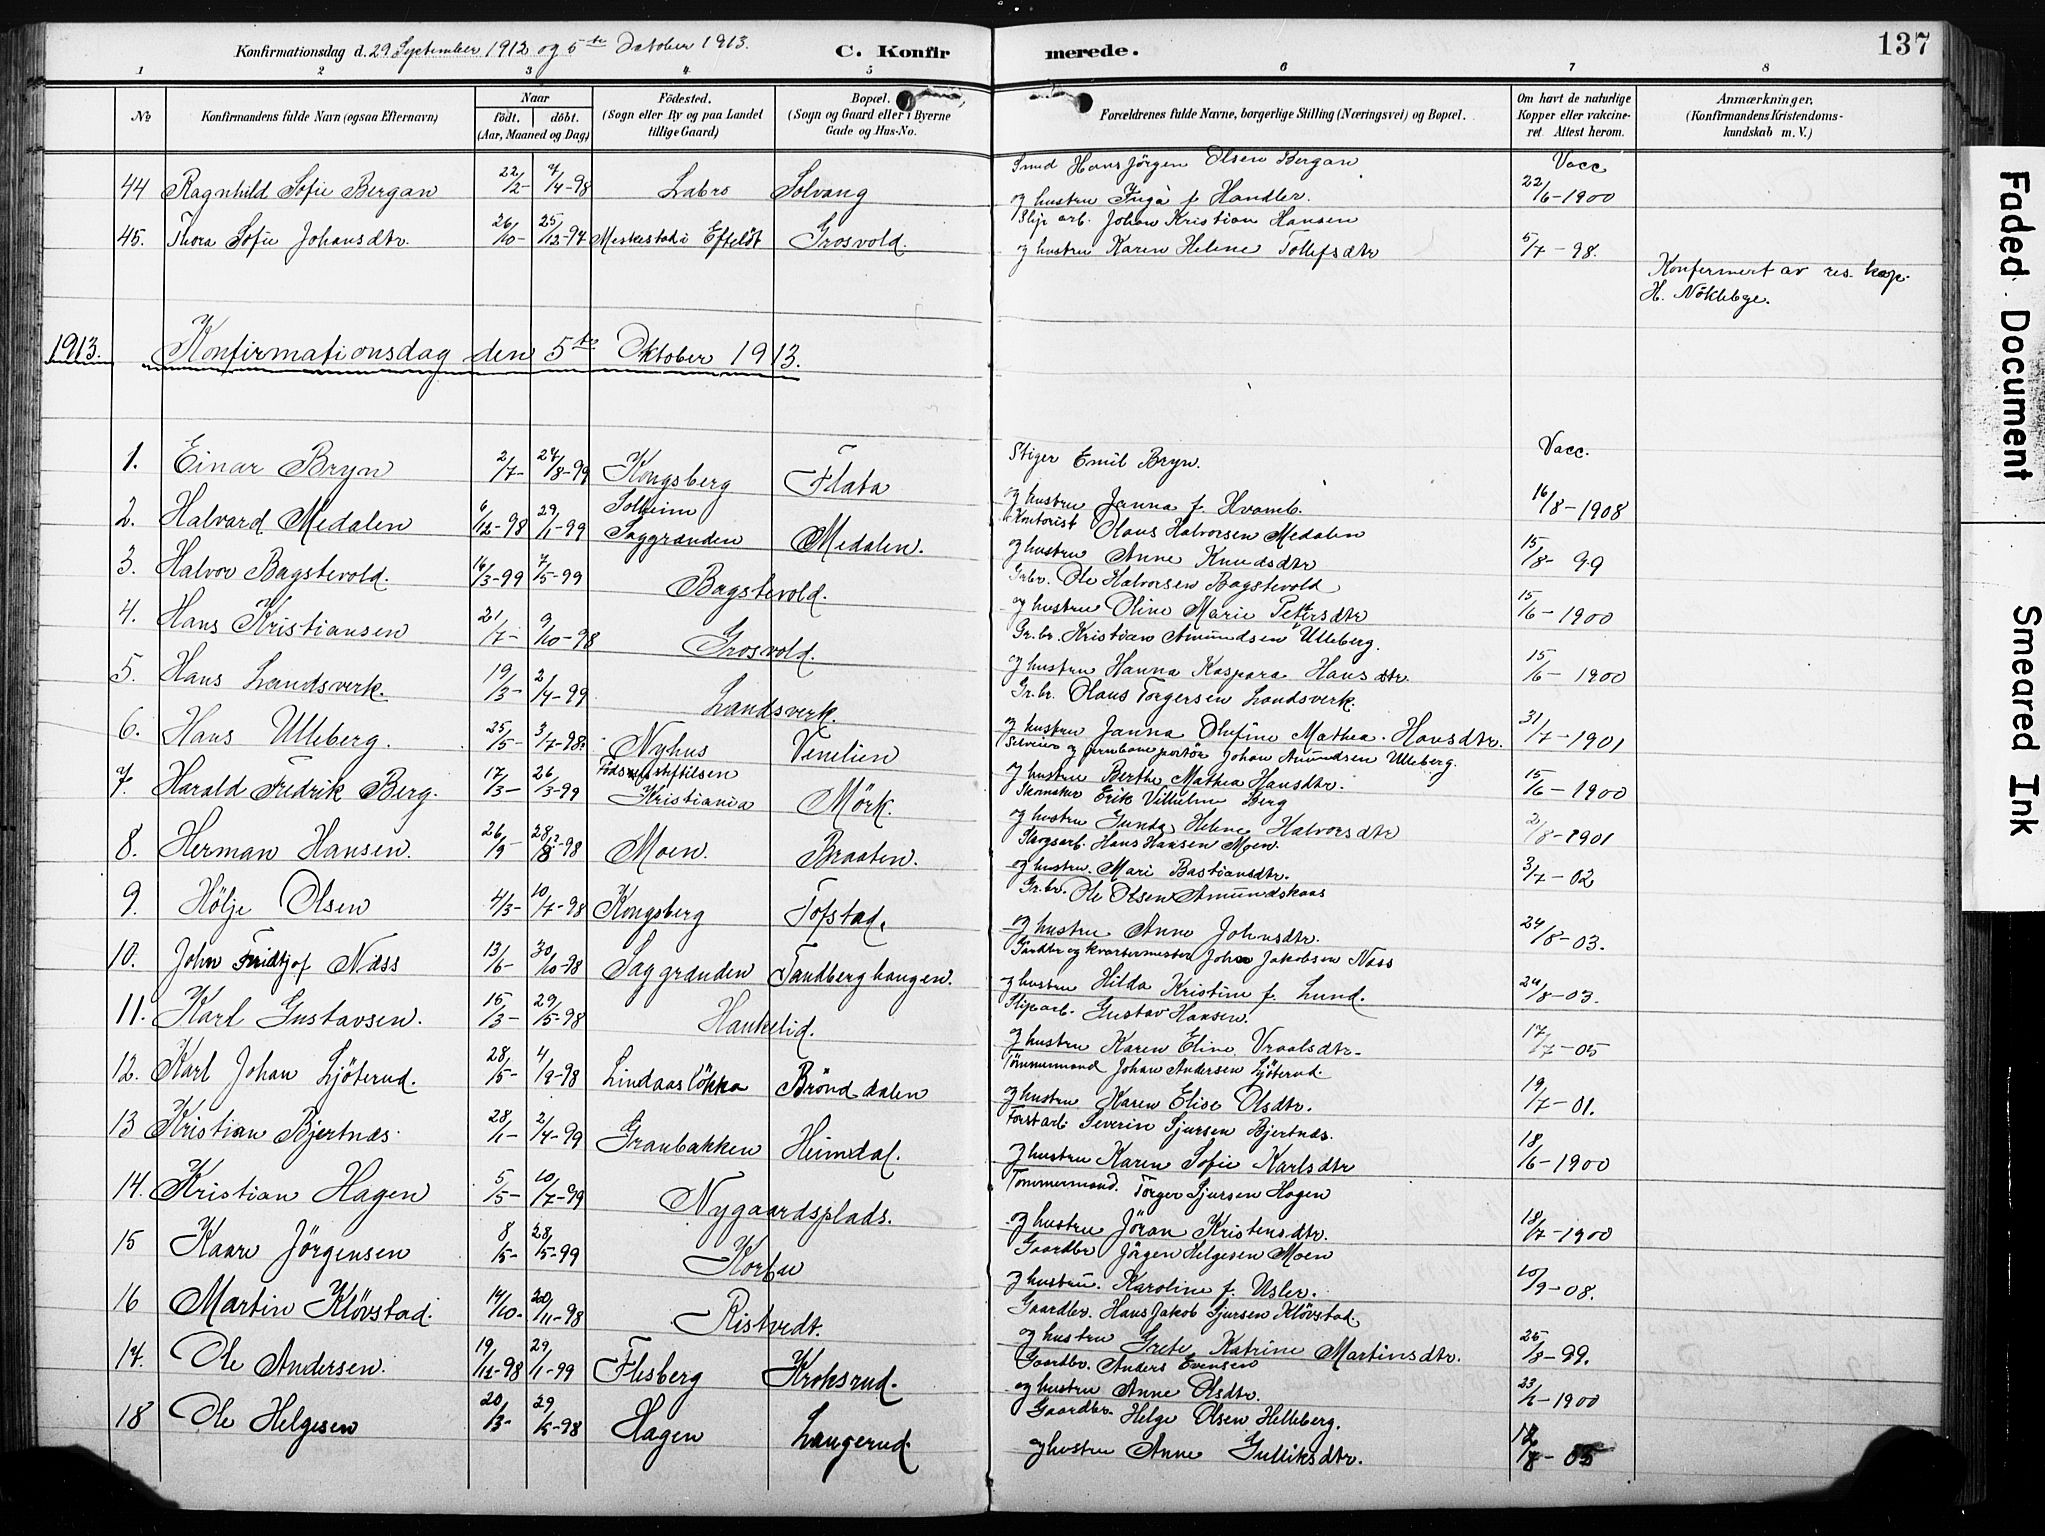 Konfirmationsdag d. 29 September 1912 og 5te October 1913. C. Konfirmerede. 137
1 2 3 4 5 6 7 8
No Konfirmandens fulde Navn (ogsaa Efternavn) Naar født. døbt. (Aar, Maaned og Dag) Fødested. (Sogn eller By og paa Landet tillige Gaard) Bopæl. (Sogn og Gaard eller i Byerne Gade og Hus-No. Forældrenes fulde Navne, borgerlige Stilling (Næringsvei) og Bopæl. Om havt de naturlige Kopper eller vakcineret. Attest herom. Anmærkninger. (Konfirmandens Kristendomskundskab m. V.)
44 Ragnhild Sofie Bergan 22/2- 7/4-98 Labro Solvang Smed Hans Jørgen Olsen Bergan Vacc
og hustru Inga f. Handler. 22/6-1900
45. Thora Sofie Johansdtr. 26/10- 25/12-97 Efteløt Grosvold. Slip arb. Johan Kristian Hansen
og hustru Karen Helene Tollefsdtr 5/7-98.
Konfermert av res. kap.
H. Nøkleby.
1913. Konfirmationsdag den 5te Oktober 1913.
1. Einar Bryn 2/7- 27/8-99 Kongsberg Flata Stiger Emil Bryn. Vacc.
og hustru Janna f. Hvamb. 16/8-1908
2. Halvard Medalen 6/12-98 29/1-99 Solheim Saggrænden Medalen. Kontorist Olaus Halvorsen Medalen
og hustru Anne Knudsdtr 15/8-99
3. Halvor Bagstevold. 16/3-99 7/5-99 Bagstevold. Gr.br. Ole Halvorsen Bagstevold
og hustru Oline Marie Petersdtr 15/6-1900
4. Hans Kristiansen 21/7- 9/10-98 Grosvold. Gr.br. Kristian Amundsen Ulleberg.
og hustru Hanna Kaspara Hansdtr. 15/6-1900
5. Hans Landsverk. 19/3- 2/4-99 Landsverk. Gr.br. Olaus Torgersen Landsverk.
og hustru Janna Olufine Mathea Hansdtr. 31/7-1901
6. Hans Ulleberg. 25/5- 3/7-98. Nyhus Venelien Selveier og jernbaneportør Johan Amundsen Ulleberg.
og hustru Berthe Mathea Hansdtr. 15/6-1900
7. Harald Fredrik Berg. 17/3- 26/3-99 Fødselsstiftelsen Kristiania Mørk. Skomaker Erik Vilhelm Berg
og hustru Gunda Helene Halvorsdtr 2/8-1901
8. Herman Hansen. 26/9- 28/12-98 Moen. Braaten. Hans Hansen Moen.
og hustru. Mari Bastiansdtr. 3/7-02
9. Hølje Olsen 4/3- 10/7-98 Kongsberg Tofstad. Gr.br. Ole Olsen Amundskaas
og hustru Anne Johnsdtr. 24/8-03.
10. John Fridtjof Næss 13/6- 30/10-98 Saggrænden Tandberghaugen. Gaardbr og kvartermester Johan Jakobsen Næss
og hustru Hilda Kristine f. Lund. 24/8-03.
11. Karl Gustavsen. 15/3- 29/5-98 Haukelid. Sliparb. Gustav Hansen.
og hustru Karen Eline Vraalsdtr. 17/7-05
12. Karl Johan Ljøterud. 28/5- 4/9-98 Lindaasløkka Brønddalen Tømmermand Johan Andersen Ljøterud.
og hustru Karen Elise Olsdtr. 19/7-01.
13 Kristian Bjertnæs. 28/1- 2/4-99 Granbakken Heimdal. Forstarb. Severin Sjursen Bjertnæs.
og hustru Karen Sofie Karlsdtr 18/6-1900
14. Kristian Hagen 5/5- 10/7-99 Nygaardsplads. Tømmermand. Torger Sjursen Hagen
og hustru Jøran Kristensdtr. 18/7-1900
15 Kaare Jørgensen 8/5- 28/5-99 Korbu Gaardbr Jørgen Helgesen Moen
og hustru. Karoline f. Usler. 10/9-08.
16 Martin Kløvstad. 14/10- 20/11-98 Ristvedt. Gaardbr. Hans Jakob Sjursen Kløvstad.
og hustru Grete Katrine Martinsdtr. 25/8-99.
17. Ole Andersen. 19/12-98 29/1-99 Flesberg Kroksrud. Gaardbr. Anders Evensen
og hustru Anne Olsdtr. 23/6-1900
18 Ole Helgesen 20/3- 29/5-98 Hagen Langerud. Gaardbr. Helge Olsen Helleberg.
og hustru Anne Gulliksdtr.
Faded Document
Smeared Ink